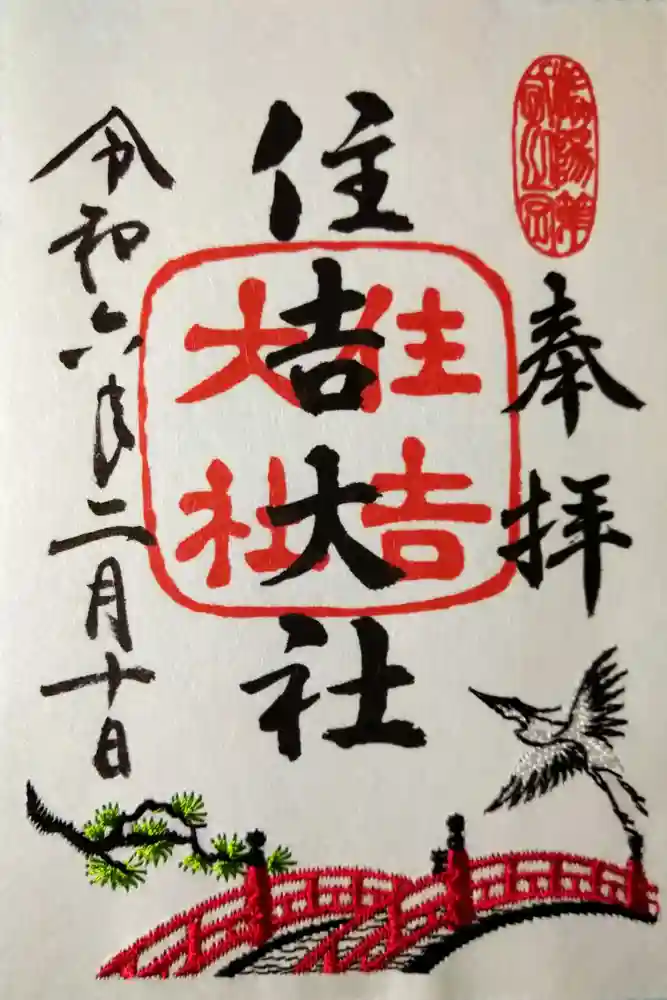 奉拝
住吉大社
住吉
大社
令和六年二月十日